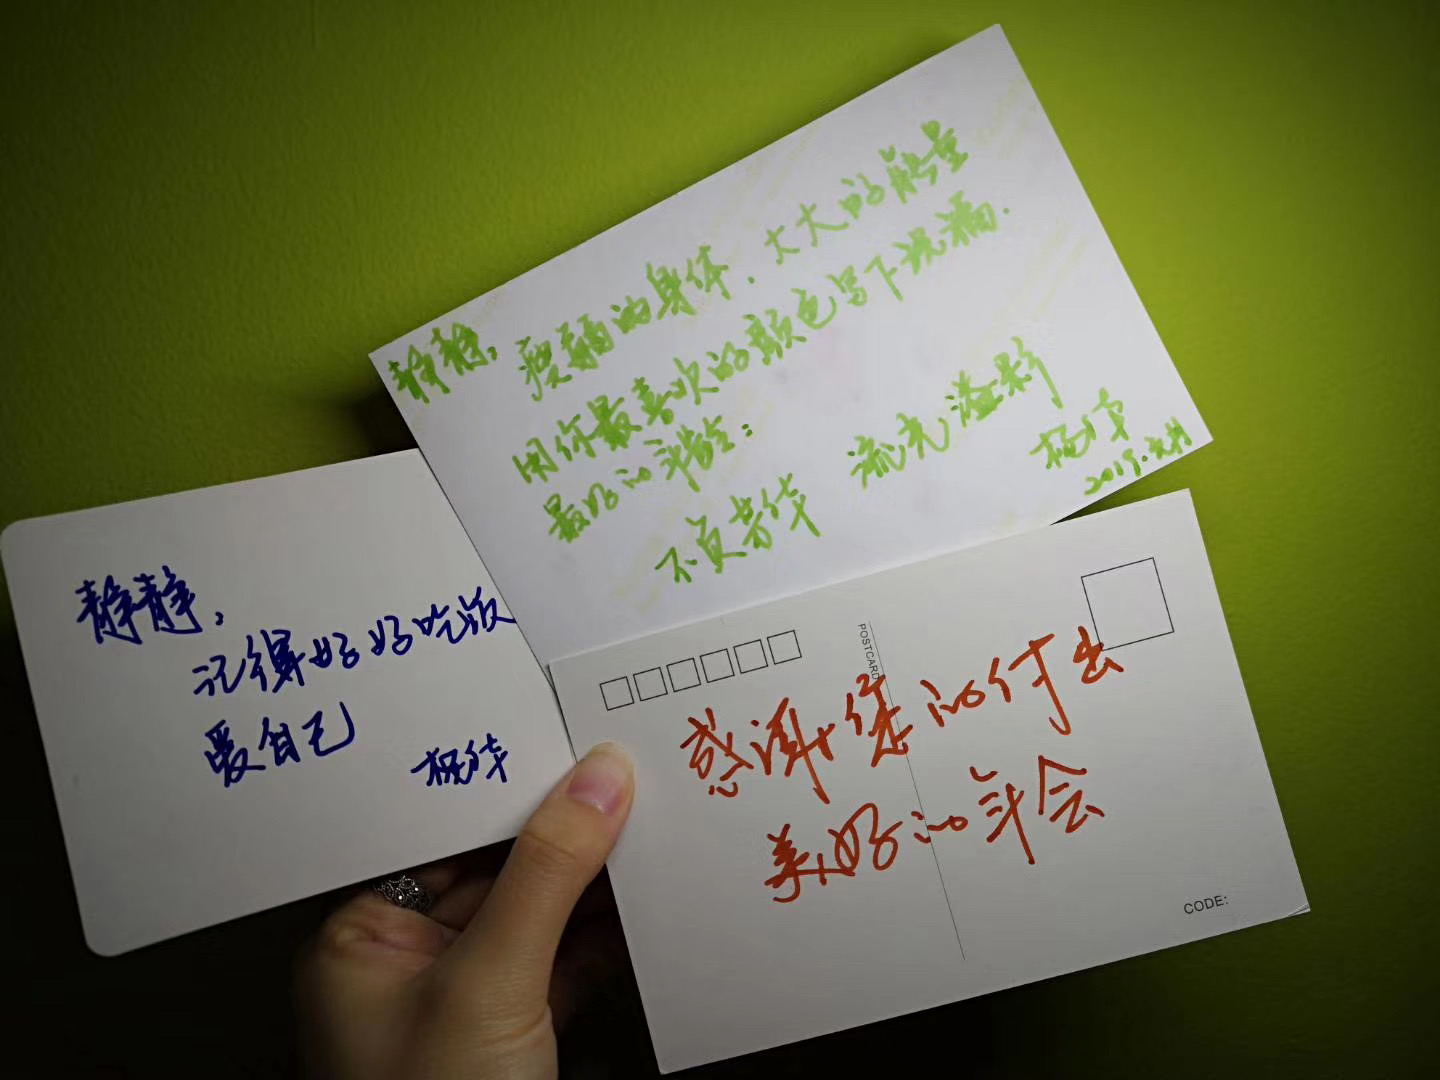 静静，瘦弱的身体，大大的能量
用你最喜欢的颜色写下祝福.
最好的年龄：
不负芳华 流光溢彩
杨华
2019.元月
静静，
记得好好吃饭
爱自己
杨华
POSTCARD
感谢您的付出
美好的年会
CODE: